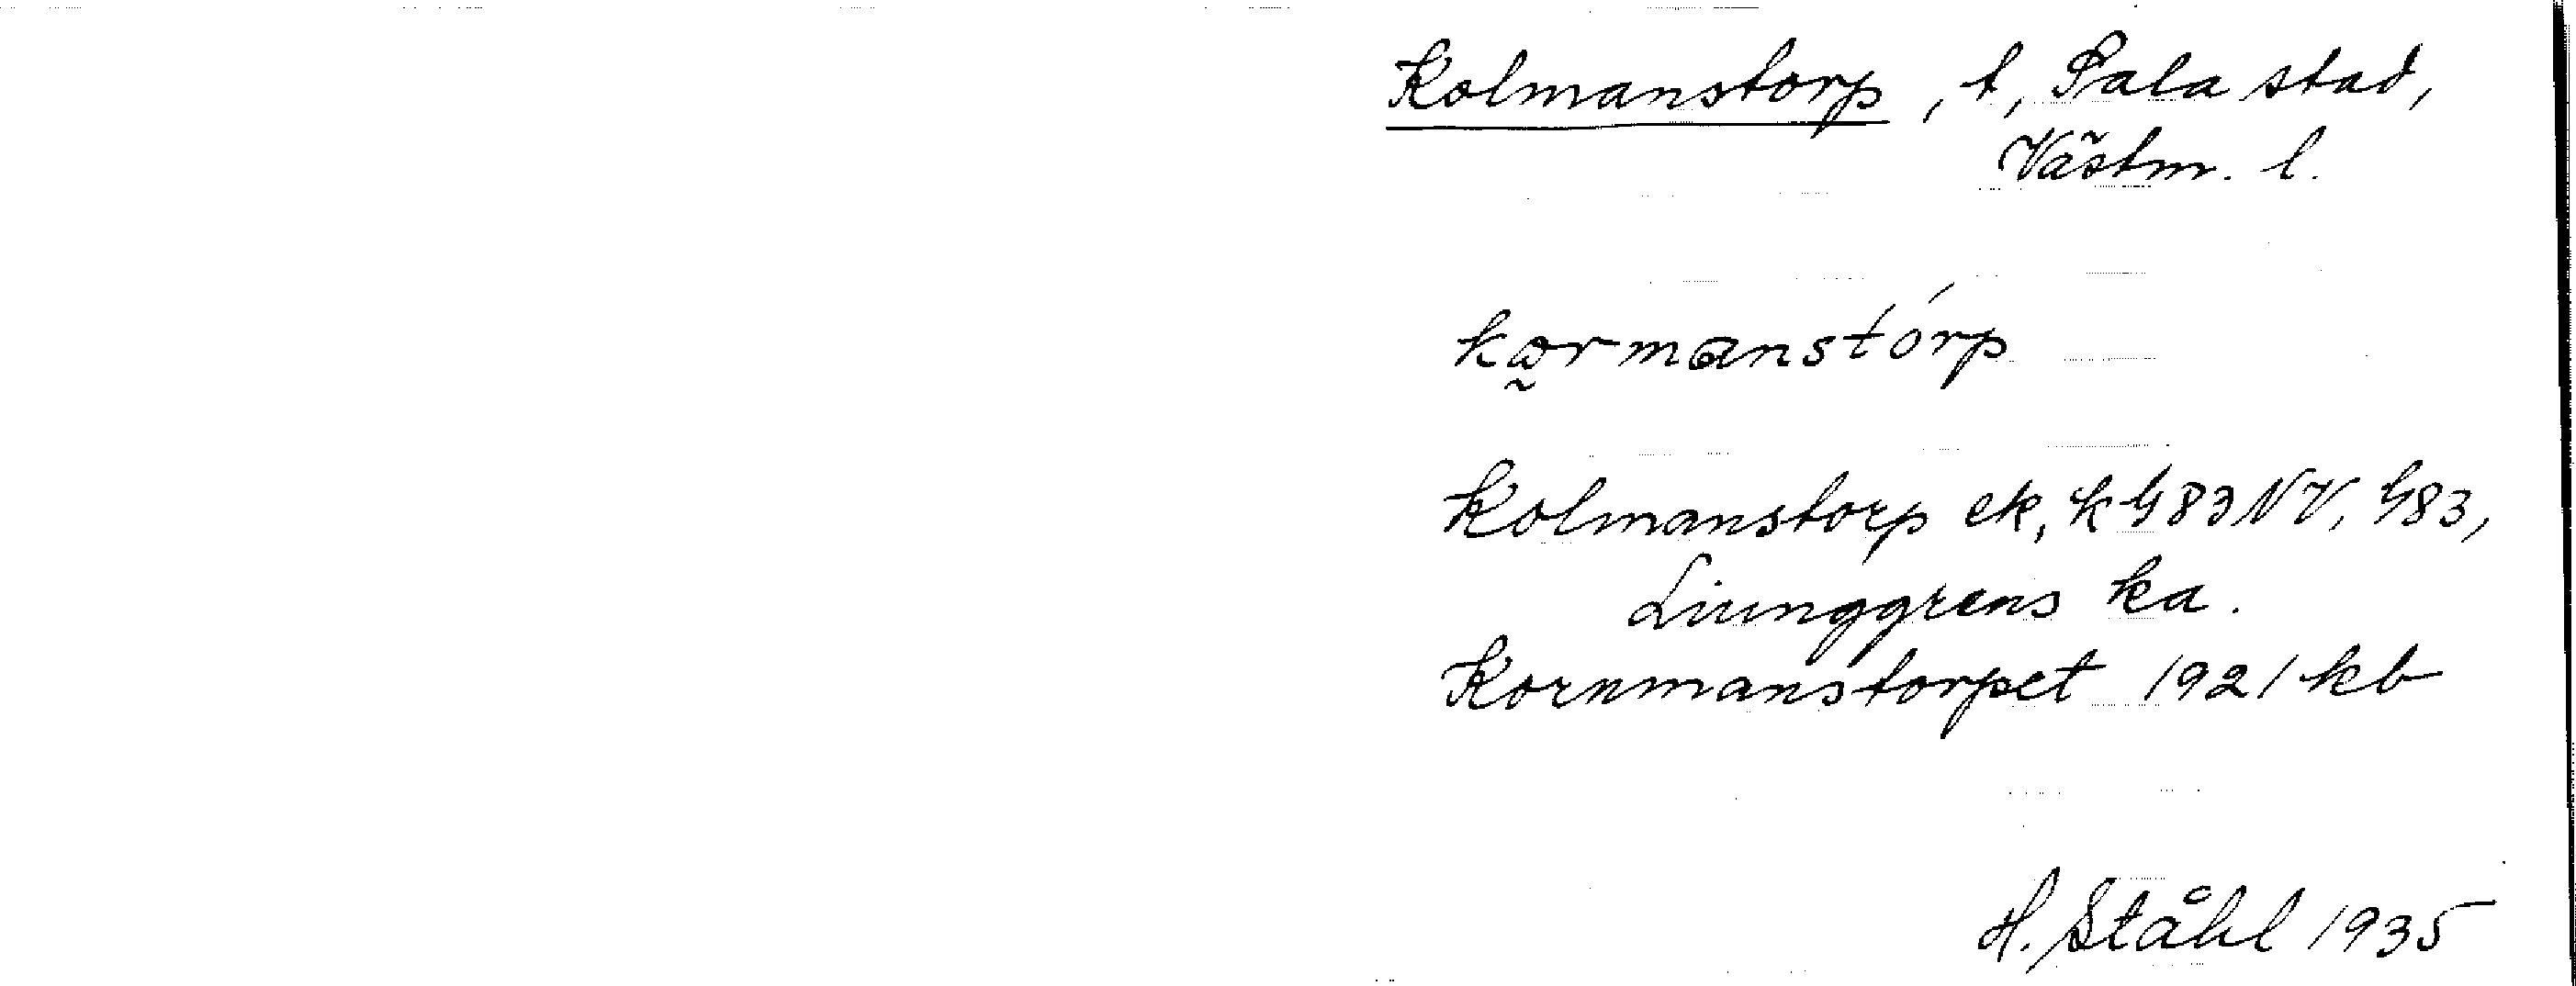 Kolmanstorp, t, Sala stad,
Västm. l.
karmanstórp
Kolmanstorp ek, k G83NV, G83,
Liunggrens ka.
Kornmanstorpet 1921 kb
H. Ståhl 1935